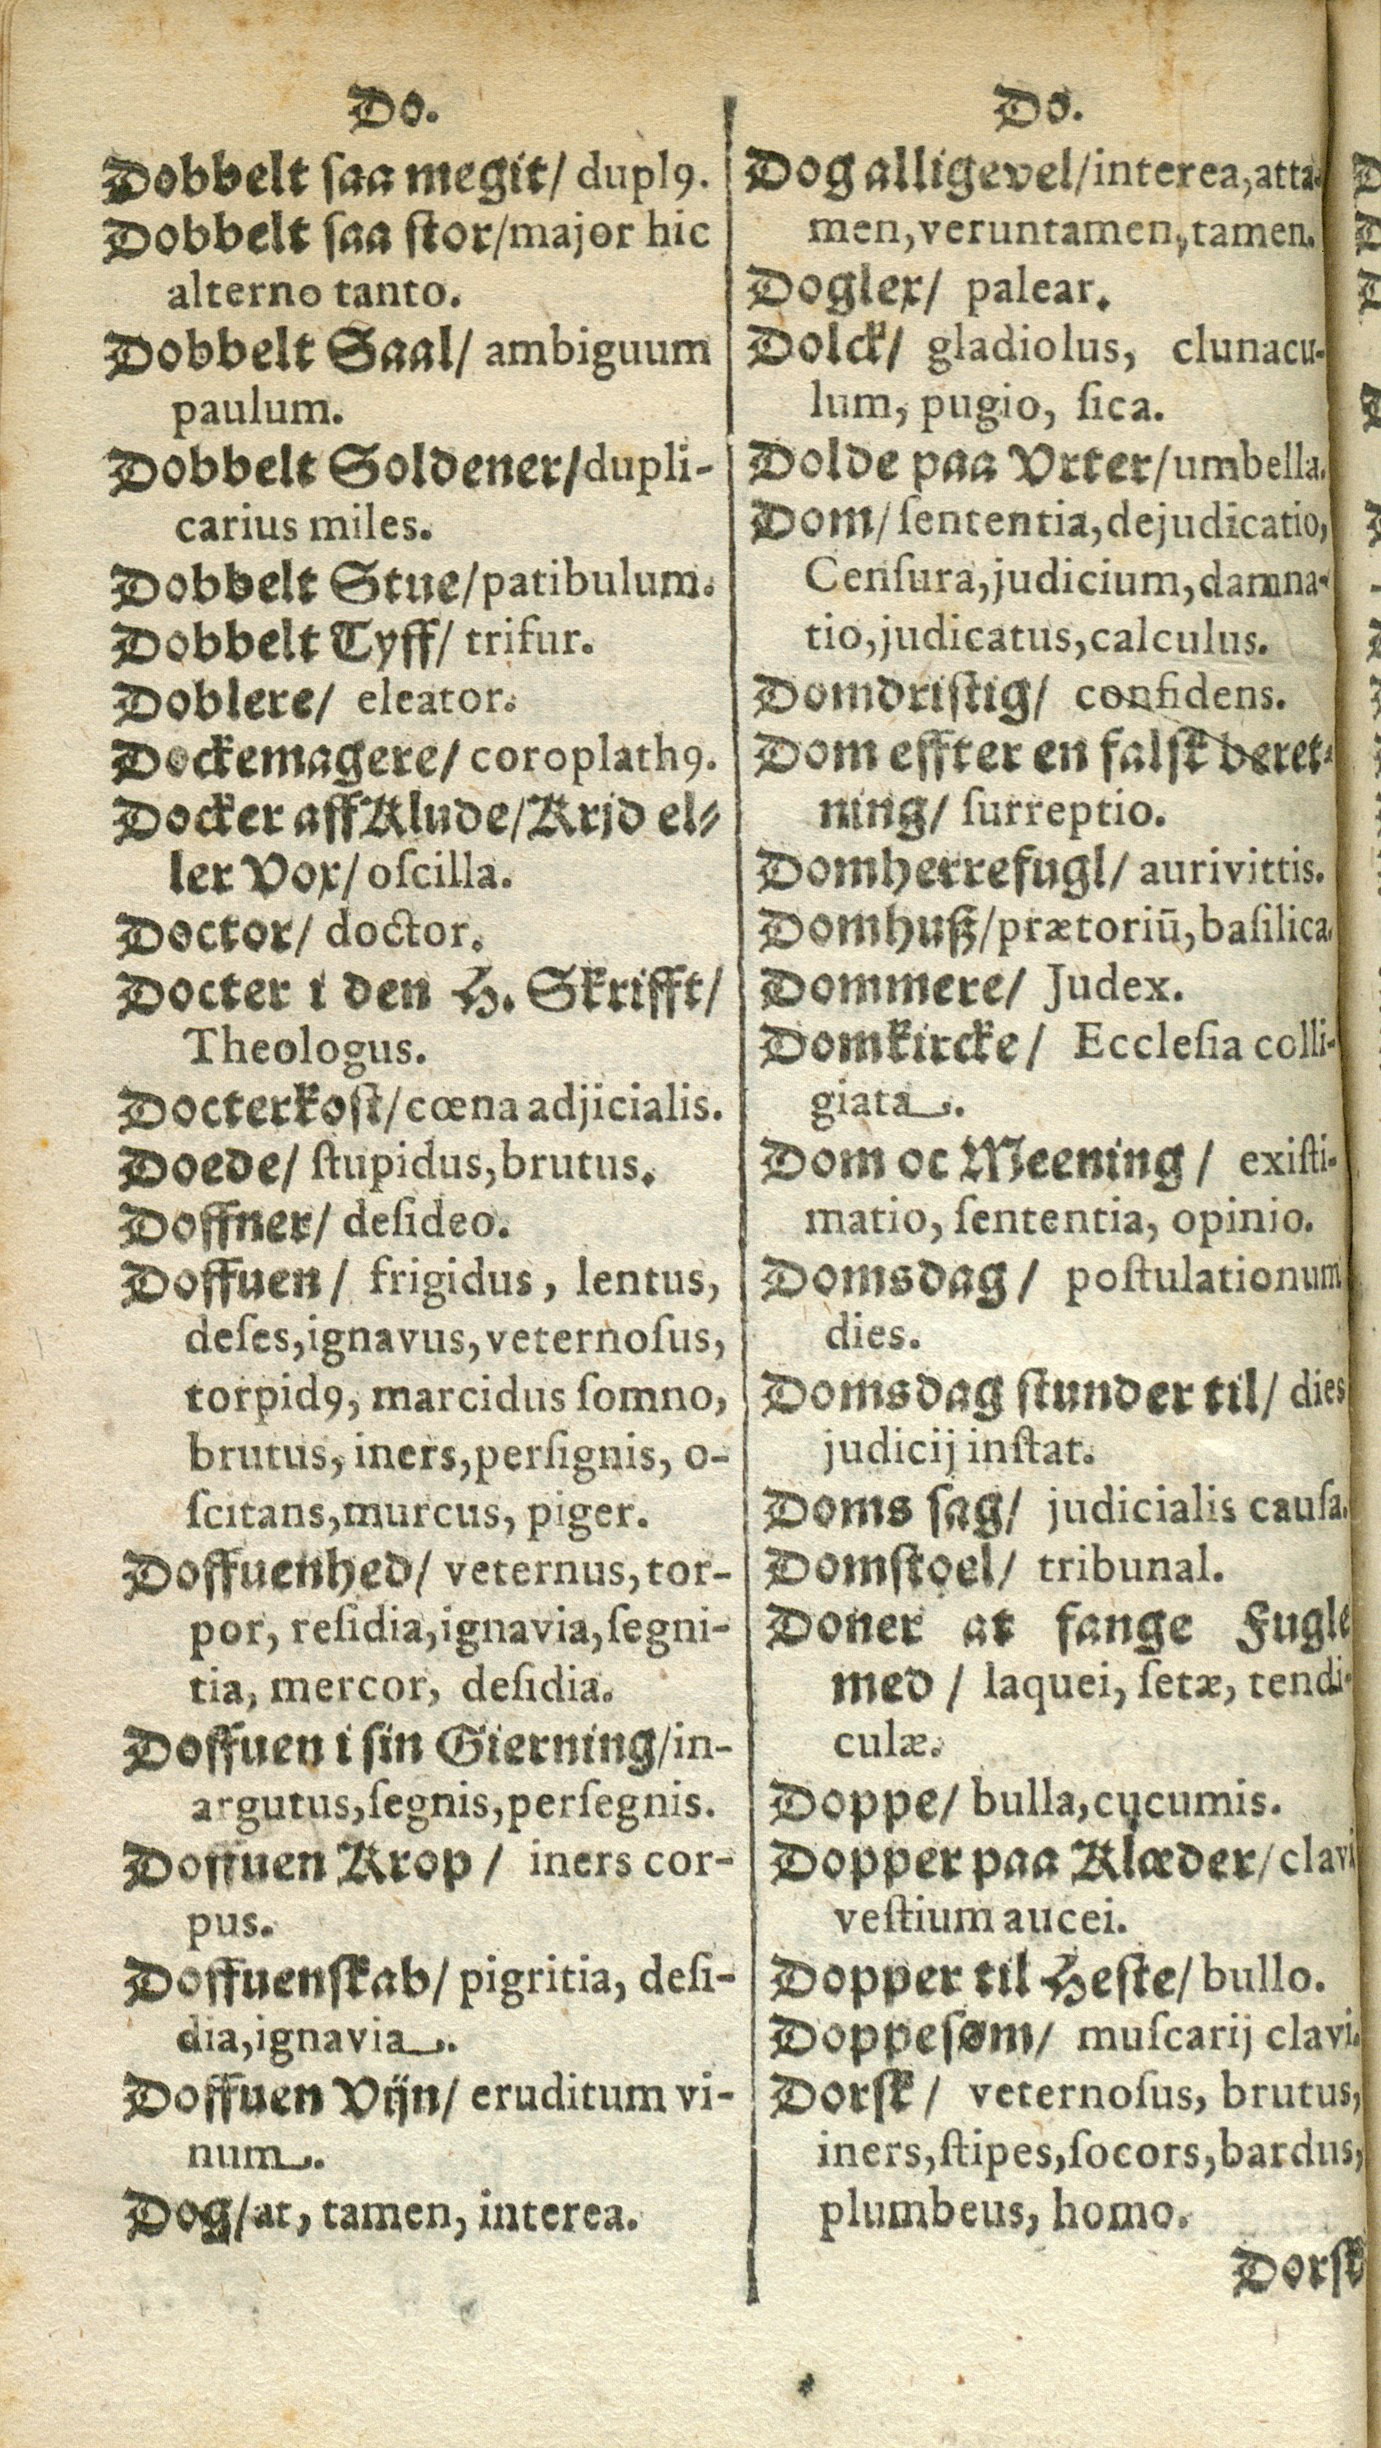 Do.
Dobbelt ſaa megit/ duplꝰ.
Dobbelt ſaa ſtor/major hic
alterno tanto.
Dobbelt Saal/ ambiguum
paulum.
Dobbelt Soldener/dupli-
carius miles.
Dobbelt Stue/patibulum.
Dobbelt Tyff/ trifur.
Doblere/ eleator.
Dockemagere/ coroplathꝰ.
Docker aff Klude/Krjd el-
ler Vox/ oſcilla.
Doctor/ doctor.
Docter i den H. Skrifft/
Theologus.
Docterkoſt/cœna adjicialis.
Doede/ ſtupidus,brutus.
Doffner/ deſideo.
Doffuen/ frigidus, lentus,
deſes,ignavus,veternoſus,
torpidꝰ, marcidus ſomno,
brutus, iners,perſignis, o-
ſcitans,murcus, piger.
Doffuenhed/ veternus,tor-
por, reſidia,ignavia,ſegni-
tia, mercor, deſidia.
Doffuen i ſin Gierning/in-
argutus,ſegnis,perſegnis.
Doffuen Krop/ iners cor-
pus.
Doffuenſkab/ pigritia, deſi-
dia,ignavia.
Doffuen Vijn/ eruditum vi-
num.
Dog/at, tamen, interea.
Do.
Dog alligevel/interea,atta-
men,veruntamen,tamen.
Dogler/ palear.
Dolck/ gladiolus, clunacu-
lum, pugio, ſica.
Dolde paa Vrter/umbella.
Dom/ ſententia,dejudicatio,
Cenſura,judicium,damna-
tio,judicatus,calculus.
Domdriſtig/ confidens.
Dom effter en falſk beret-
ning/ ſurreptio.
Domherrefugl/ aurivittis.
Domhuß/prætoriū,baſilica.
Dommere/ Judex.
Domkircke/ Eccleſia colli-
giata.
Dom oc Meening/ exiſti-
matio, ſententia, opinio.
Domsdag/ poſtulationum
dies.
Domsdag ſtunder til/ dies
judicij inſtat.
Doms ſag/ judicialis cauſa.
Domſtoel/ tribunal.
Doner at fange Fugle
med/ laquei, ſetæ, tendi-
culæ.
Doppe/ bulla,cucumis.
Dopper paa Klæder/clavi
veſtium aucei.
Dopper til Heſte/ bullo.
Doppeſøm/ muſcarij clavi.
Dorſk/ veternoſus, brutus,
iners,ſtipes,ſocors,bardus,
plumbeus, homo.
Dorſk